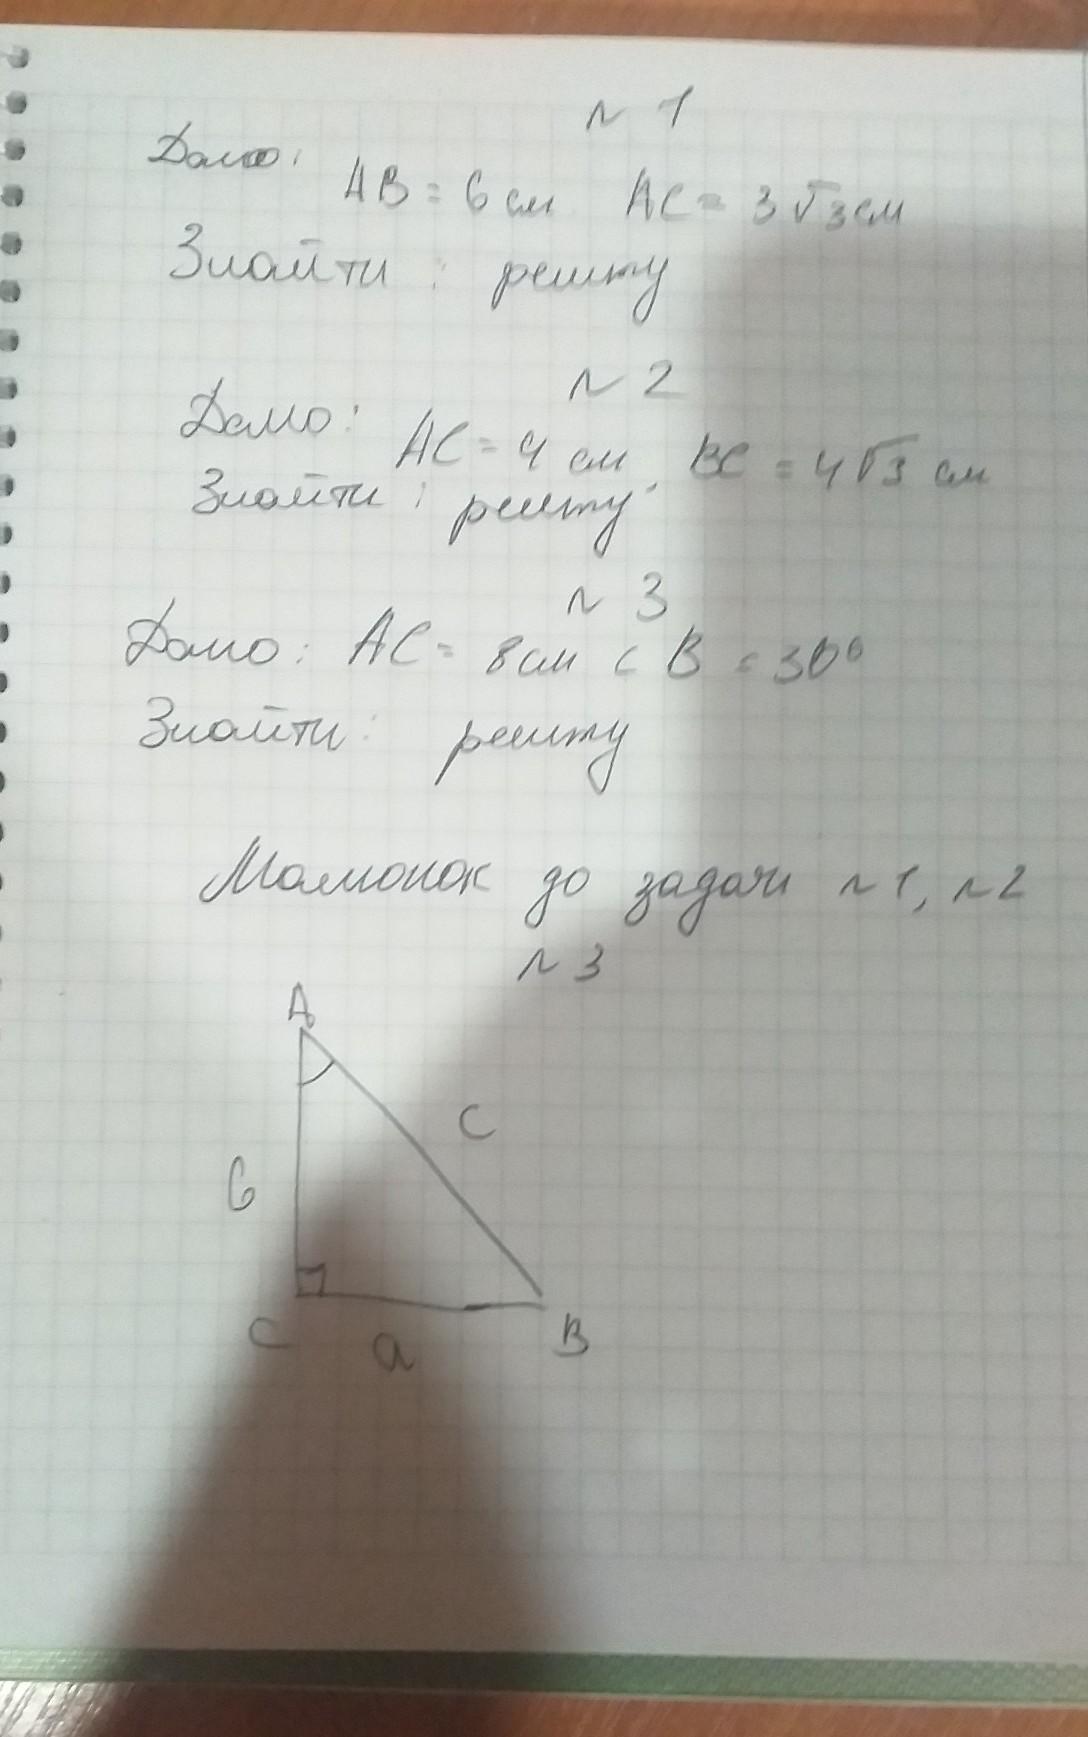 № 1
Дано:
AB = 6 см AC = 3√3 см
Знайти : решту
№ 2
Дано:
AC = 4 см BC = 4√3 см
Знайти : решту
№ 3
Дано: AC = 8 см < B = 30°
Знайти: решту
Малюнок до задачі №1, №2
№ 3
A
c
b
C
a
B